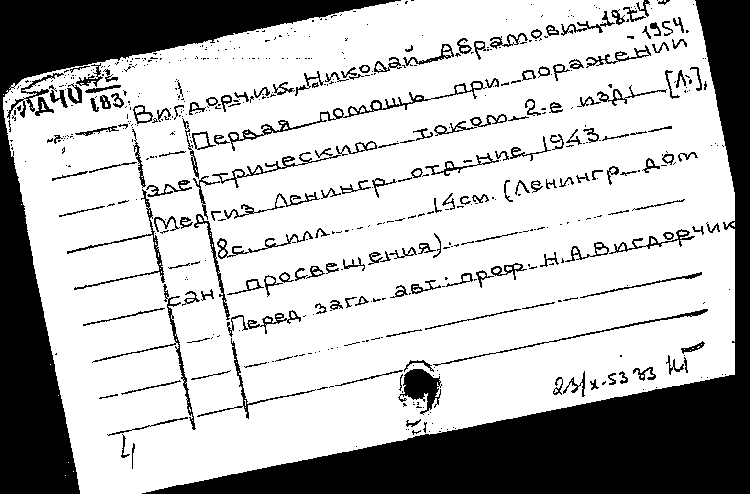 Вигдорчик, Николай Абрамович, 1874-
1954.
Первая помощь при поражении
электрическим током. 2-е изд. [Л.],
Медгиз Ленингр. отд-ние, 1943.
8с. с илл. 14см. (Ленингр. дом
сан. просвещения).
Перед загл. авт.: проф. Н.А.Вигдорчик
4